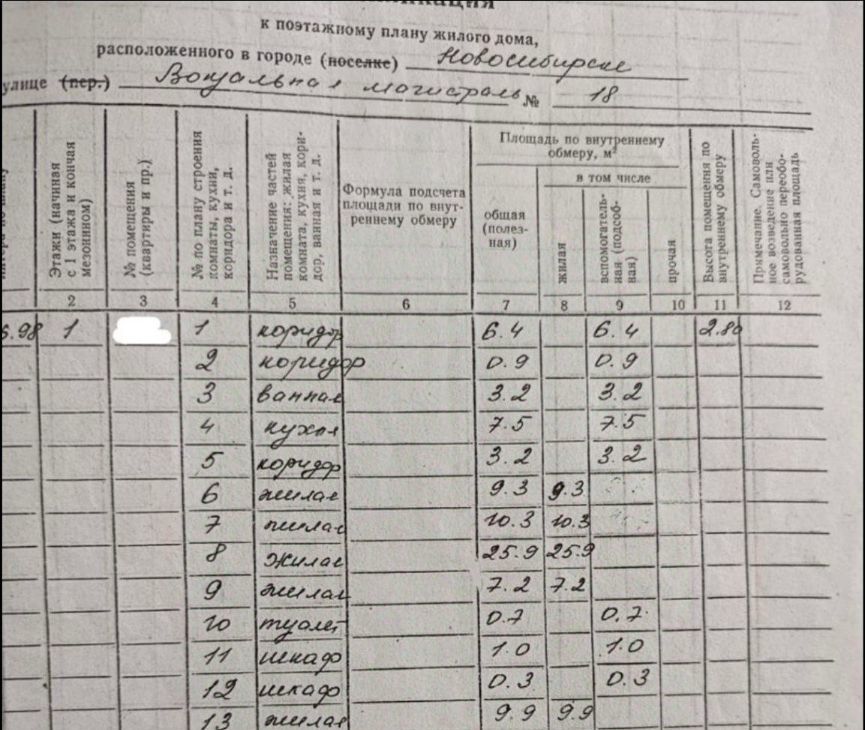 к поэтажному плану жилого дома,
расположенного в городе (поселке) Новосибирске
улице (пер.) Вокзальная магистраль № 18
Этажи (начиная с 1 этажа и кончая мезонином)
№ помещения (квартиры и пр.)
№ по плану строения комнаты, кухни, коридора и т. д.
Назначение частей помещения: жилая комната, кухня, коридор, ванная и т. д.
Формула подсчета площади по внутреннему обмеру
Площадь по внутреннему обмеру, м²
в том числе
общая (полезная)
жилая
вспомогательная (подсобная)
прочая
Высота помещения по внутреннему обмеру
Примечание. Самовольное возведение или самовольно переоборудованная площадь
2 3 4 5 6 7 8 9 10 11 12
6.98 1 1 коридор 6.4 6.4 2.80
2 коридор 0.9 0.9
3 ванная 3.2 3.2
4 кухня 7.5 7.5
5 коридор 3.2 3.2
6 жилая 9.3 9.3
7 жилая 10.3 10.3
8 жилая 25.9 25.9
9 жилая 7.2 7.2
10 туалет 0.7 0.7
11 шкаф 1.0 1.0
12 шкаф 0.3 0.3
13 жилая 9.9 9.9